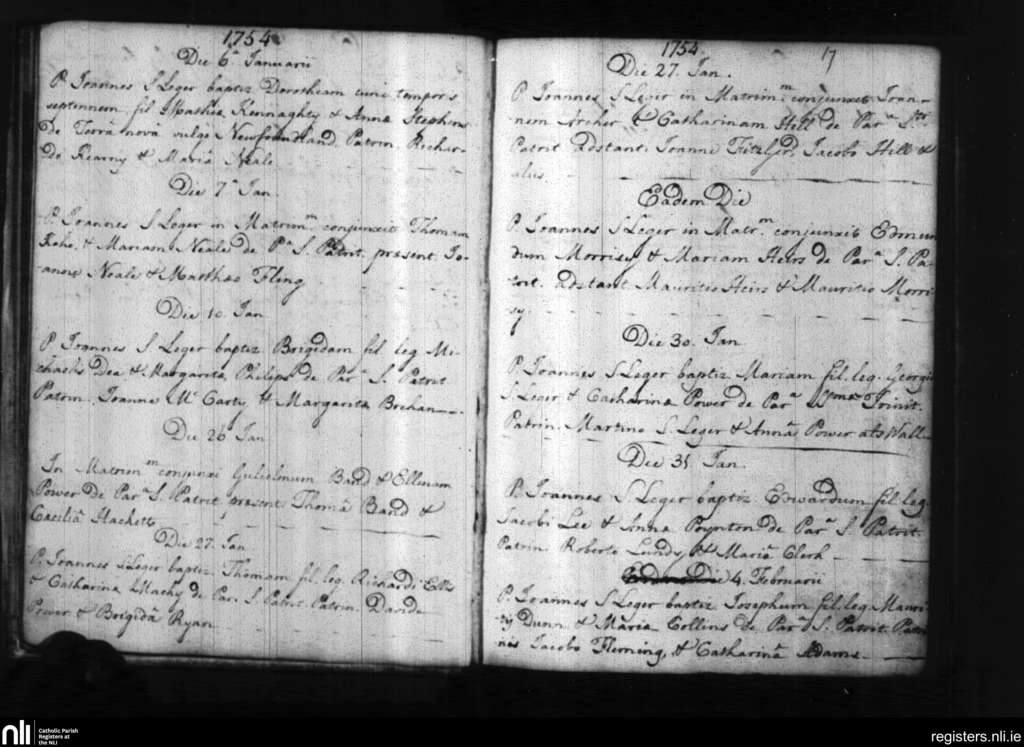 1754
Die 6ᵃ Januarii
P. Joannes S Leger baptiz Dorotheam cum tempor
septennem fil Mathiæ Kennaghty & Annæ Stephens
De Terrâ nova vulgo Newfoundland. Patrin Richar-
do Kearny & Mariâ Neale.
Die 7ᵃ Jan.
P. Joannes S Leger in Matrimᵐ conjunxit Thomam
Kehe & Mariam Neale de Pᵃ S. Patrit. præsent. Jo-
anne Neale & Matthæo Fling
Die 10. Jan
P Joannes S Leger baptiz. Brigidam fil. leg Mi-
chaelis Dea & Margaritæ Philips de Parᵃ S. Patrit
Patrin. Joanne Mᶜ Carty & Margaritâ Brehan
Die 26 Jan
In Matrimᵐ conjunxi Gulielmum Band & Ellenam
Power de Parᵃ S. Patrit, præsent Thomâ Band &
Cæciliâ Hackett
Die 27. Jan
P. Joannes S Leger baptiz. Thomam fil. leg. Richardi
& Catharinæ Machy de Par. S. Patrit. Patrin. Davide
Power & Brigidâ Ryan
1754
17
Die 27. Jan.
P Joannes S Leger in Matrimᵐ conjunxit Joan-
nem Archer & Catharinam Hill de Parᵃ
Patrit Adstant. Joanne FitzGerd. Jacobo Hill &
aliis.
Eadem Die
P. Joannes S Leger in Matrᵐ conjunxit Edmun
dum Morrisy & Mariam Heirs de Parᵃ S. Pa-
trit. Adstant Mauritio Heirs & Mauritio Morri
sy.
Die 30. Jan
P. Joannes S Leger baptiz Mariam fil. leg. Georgii
S Leger & Catharinæ Power de Parᵃ Trinit.
Patrin. Martino S. Leger & Annâ Power als Wall
Die 31. Jan.
P. Joannes S Leger baptiz Edwardum fil leg.
Jacobi Lee & Annæ Poynton de Parᵃ S. Patrit.
Patrin Roberto Lundy & Mariâ Clerk
4. Februarii
P. Joannes S Leger baptiz Josephum fil. leg. Mauri
tij Dunn & Mariæ Collins de Parᵃ S. Patrit Patri
nis Jacobo Fleming, & Catharinâ Adams
nli
Catholic Parish
Registers at
the NLI
registers.nli.ie